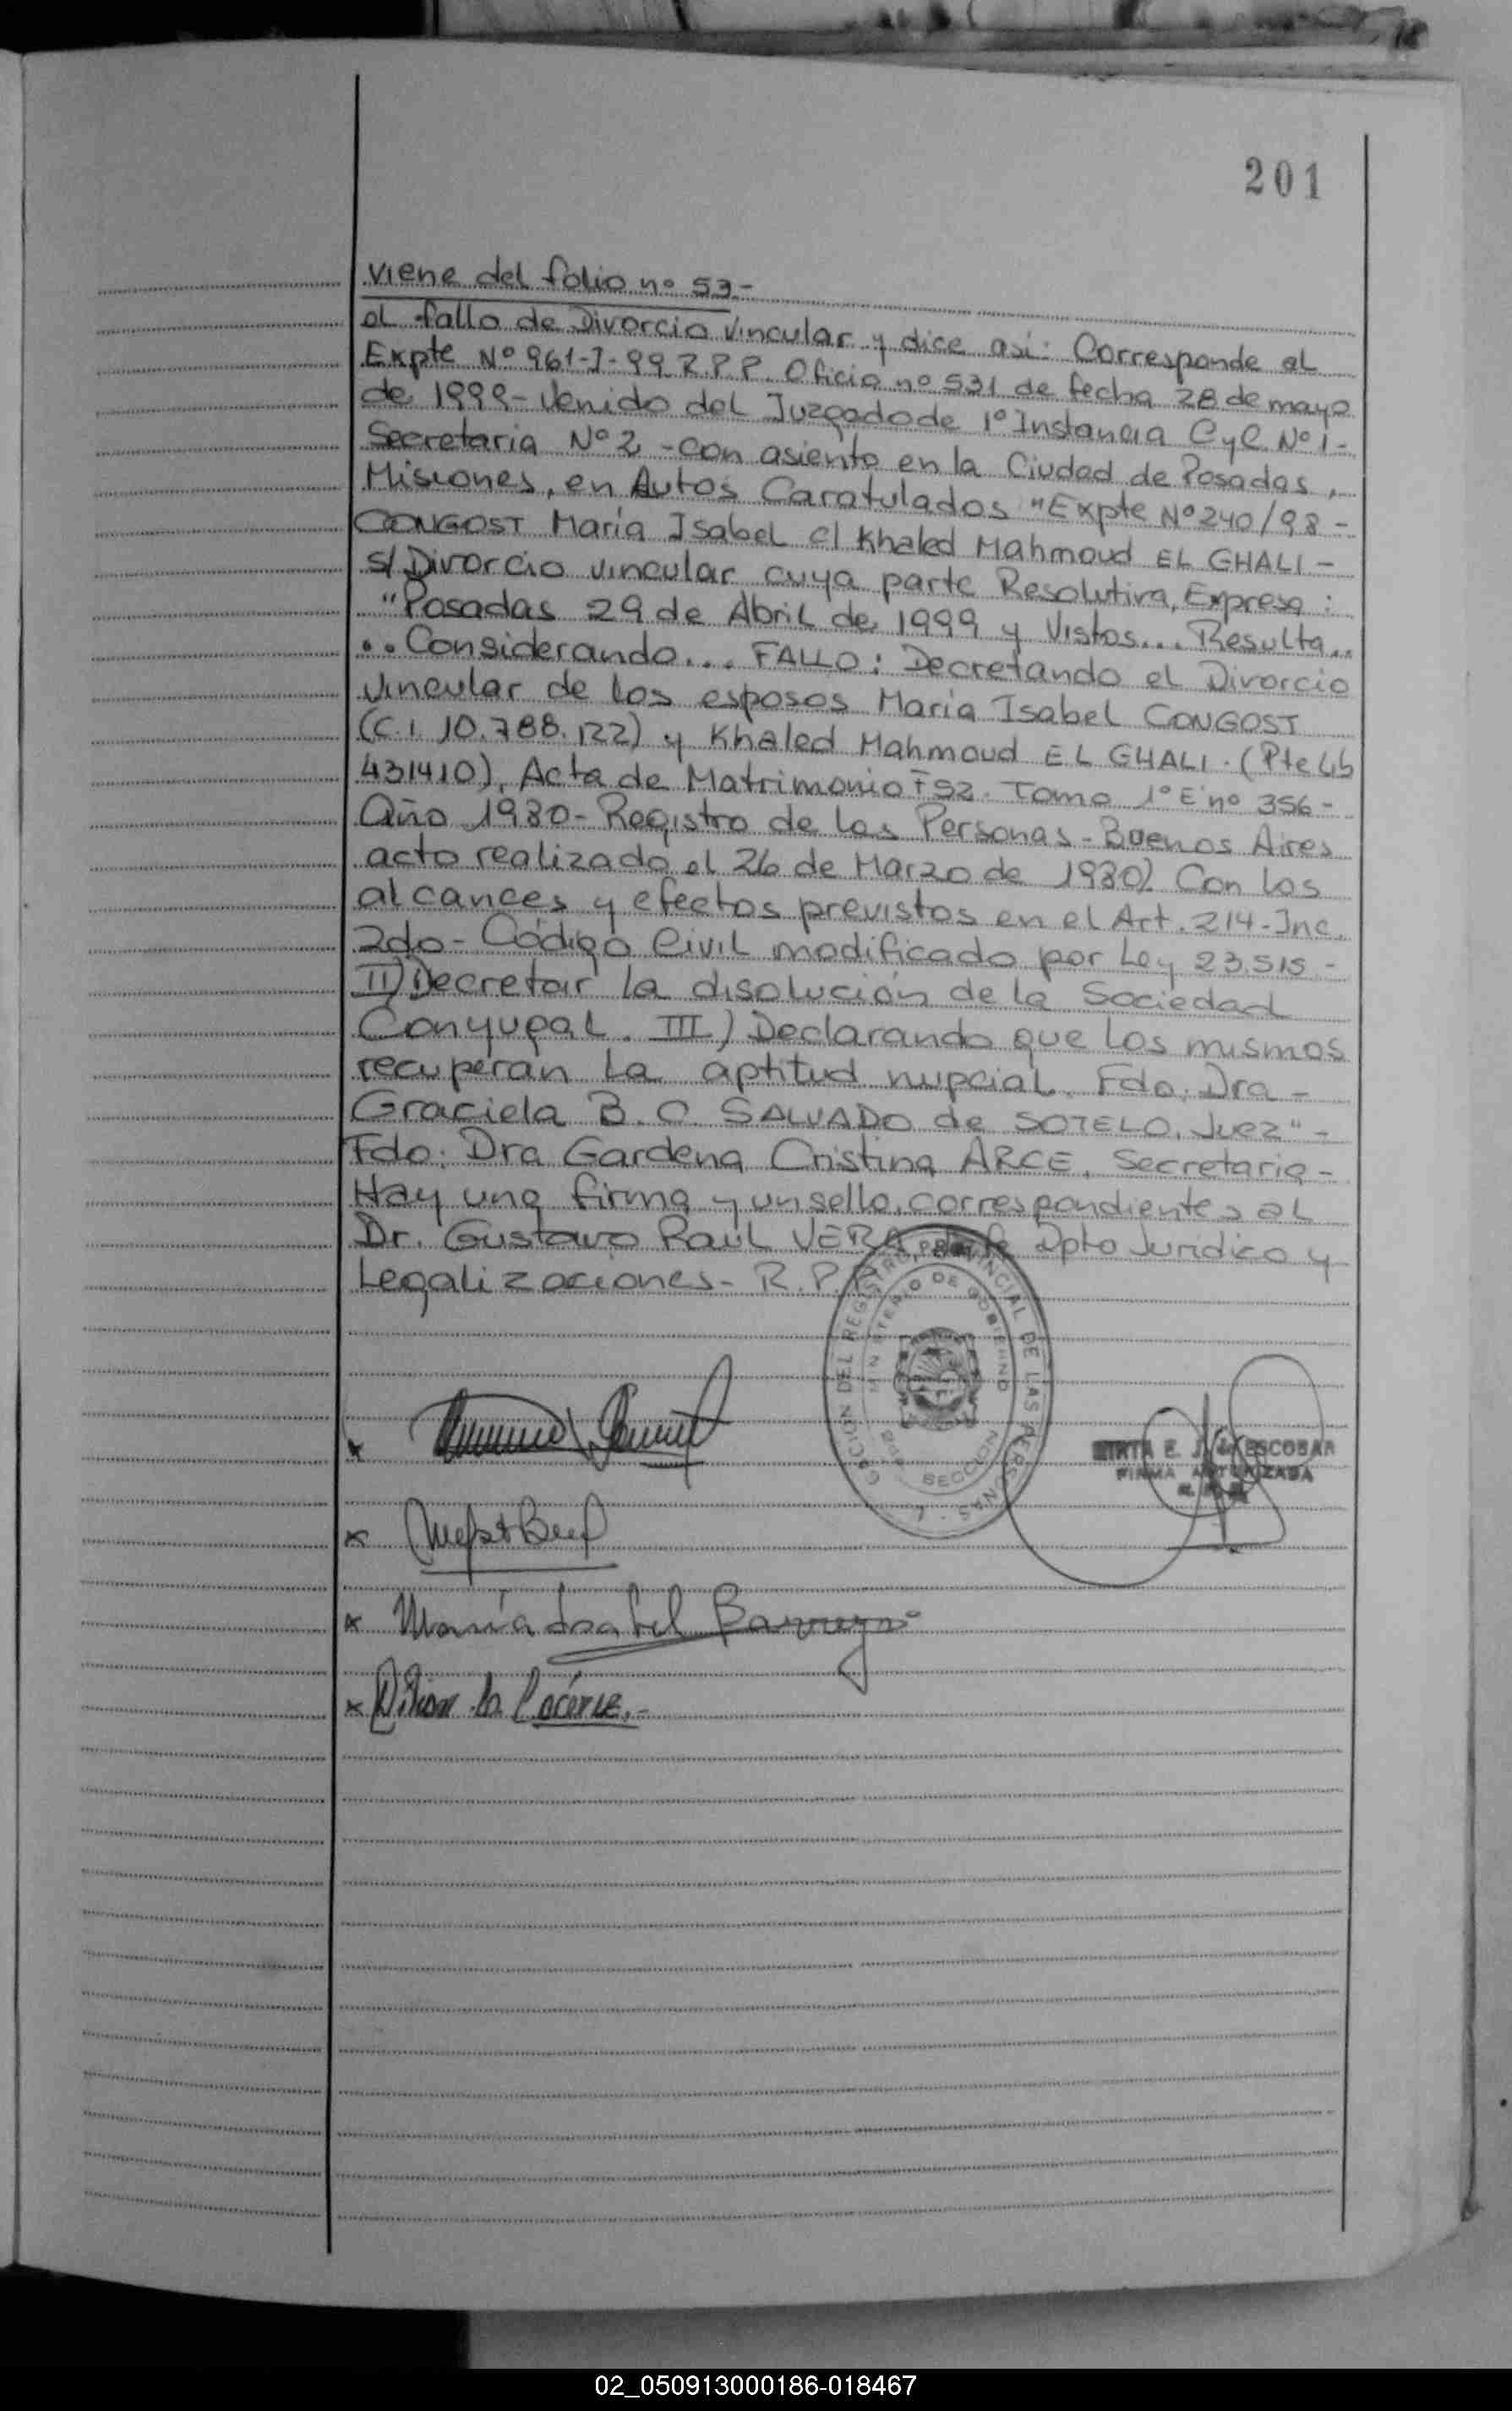 201
viene del folio nº 53.-
el fallo de Divorcio Vincular y dice así: Corresponde al
Expte Nº 961-J-99 R.P.P. Oficio nº 531 de fecha 28 de mayo
de 1999- Venido del Juzgado de 1º Instancia CyC Nº 1-
Secretaria Nº 2 -con asiento en la Ciudad de Posadas,
Misiones, en Autos Caratulados "Expte Nº 240/98-
CONGOST María Isabel c/ Khaled Mahmoud EL GHALI-
s/Divorcio vincular cuya parte Resolutiva, Expresa:
"Posadas 29 de Abril de 1999 y Vistos... Resulta..
..Considerando... FALLO: Decretando el Divorcio
vincular de los esposos Maria Isabel CONGOST
(C.I. 10.788.122) y Khaled Mahmoud EL GHALI. (Pte Lib
431410), Acta de Matrimonio F 92. Tomo 1º E nº 356-
Año 1980- Registro de las Personas- Buenos Aires
acto realizado el 26 de Marzo de 1980). Con los
alcances y efectos previstos en el Art. 214- Inc.
2do- Código Civil modificado por Ley 23.515-
II) Decretar la disolución de la Sociedad
Conyugal. III) Declarando que los mismos
recuperan la aptitud nupcial. Fdo. Dra-
Graciela B. C. SALVADO de SOTELO. Juez"-
Fdo. Dra Gardena Cristina ARCE. Secretaria-
Hay una firma y un sello, correspondientes al
Dr. Gustavo Raúl VERA, Dpto Jurídico y
Legalizaciones- R.P.P.
DEL REGISTRO PROVINCIAL DE LAS PERSONAS
MINISTERIO DE GOBIERNO
SECCION
ESCOBAR
FIRMA AUTORIZADA
x
x
x María Isabel
x
02_050913000186-018467